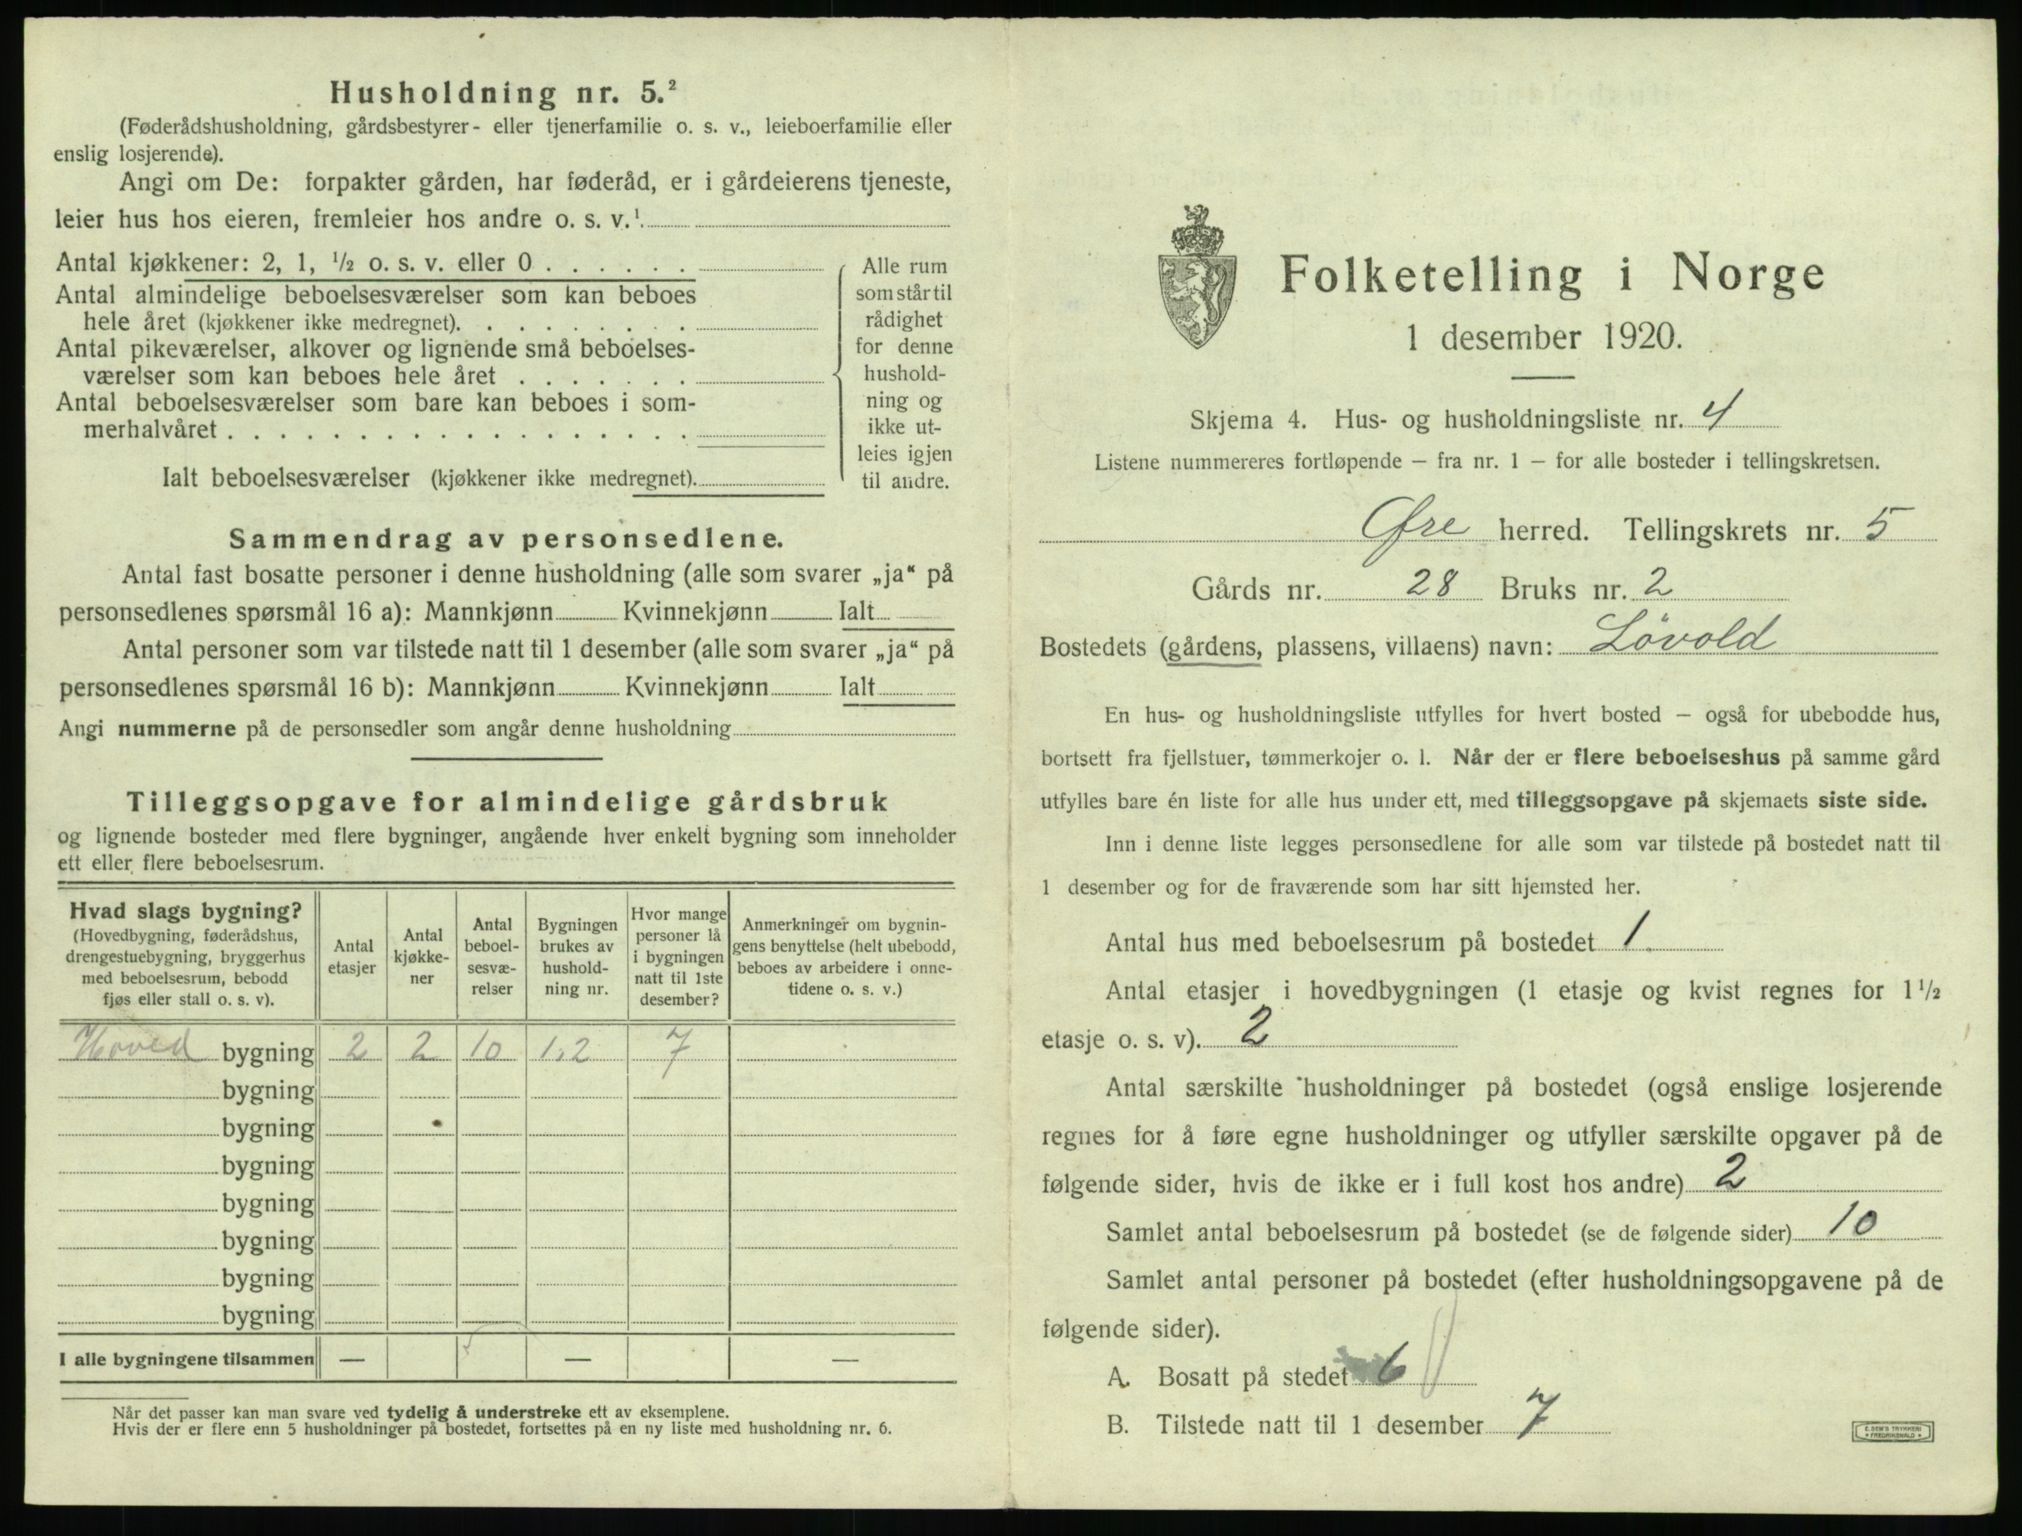 Husholdning nr. 5.²
(Føderådshusholdning, gårdsbestyrer- eller tjenerfamilie o. s. v., leieboerfamilie eller
enslig losjerende).
Angi om De: forpakter gården, har føderåd, er i gårdeierens tjeneste,
leier hus hos eieren, fremleier hos andre o. s. v.¹
Antal kjøkkener: 2, 1, ½ o. s. v. eller 0
Antal almindelige beboelsesværelser som kan beboes
hele året (kjøkkener ikke medregnet).
Antal pikeværelser, alkover og lignende små beboelses-
værelser som kan beboes hele året
Antal beboelsesværelser som bare kan beboes i som-
merhalvåret
Ialt beboelsesværelser (kjøkkener ikke medregnet).
Alle rum
som står til
rådighet
for denne
hushold-
ning og
ikke ut-
leies igjen
til andre.
Sammendrag av personsedlene.
Antal fast bosatte personer i denne husholdning (alle som svarer „ja“ på
personsedlenes spørsmål 16 a): Mannkjønn Kvinnekjønn Ialt
Antal personer som var tilstede natt til 1 desember (alle som svarer „ja“ på
personsedlenes spørsmål 16 b): Mannkjønn Kvinnekjønn Ialt
Angi nummerne på de personsedler som angår denne husholdning
Tilleggsopgave for almindelige gårdsbruk
og lignende bosteder med flere bygninger, angående hver enkelt bygning som inneholder
ett eller flere beboelsesrum.
Hvad slags bygning?
(Hovedbygning, føderådshus,
drengestuebygning, bryggerhus
med beboelsesrum, bebodd
fjøs eller stall o. s. v).
Antal
etasjer
Antal
kjøkke-
ner
Antal
beboel-
sesvæ-
relser
Bygningen
brukes av
hushold-
ning nr.
Hvor mange
personer lå
i bygningen
natt til 1ste
desember?
Anmerkninger om bygnin-
gens benyttelse (helt ubebodd,
beboes av arbeidere i onne-
tidene o. s. v.)
Hoved bygning 2 2 10 1,2 7
bygning
bygning
bygning
bygning
bygning
bygning
bygning
I alle bygningene tilsammen — — —
Når det passer kan man svare ved tydelig å understreke ett av eksemplene.
Hvis der er flere enn 5 husholdninger på bostedet, fortsettes på en ny liste med husholdning nr. 6.
Folketelling i Norge
1 desember 1920.
Skjema 4. Hus- og husholdningsliste nr. 4
Listene nummereres fortløpende – fra nr. 1 – for alle bosteder i tellingskretsen.
Øre herred. Tellingskrets nr. 5
Gårds nr. 28 Bruks nr. 2
Bostedets (gårdens, plassens, villaens) navn: Lövold
En hus- og husholdningsliste utfylles for hvert bosted – også for ubebodde hus,
bortsett fra fjellstuer, tømmerkojer o. l. Når der er flere beboelseshus på samme gård
utfylles bare én liste for alle hus under ett, med tilleggsopgave på skjemaets siste side.
Inn i denne liste legges personsedlene for alle som var tilstede på bostedet natt til
1 desember og for de fraværende som har sitt hjemsted her.
Antal hus med beboelsesrum på bostedet 1.
Antal etasjer i hovedbygningen (1 etasje og kvist regnes for 1½
etasje o. s. v). 2
Antal særskilte husholdninger på bostedet (også enslige losjerende
regnes for å føre egne husholdninger og utfyller særskilte opgaver på de
følgende sider, hvis de ikke er i full kost hos andre) 2
Samlet antal beboelsesrum på bostedet (se de følgende sider) 10
Samlet antal personer på bostedet (efter husholdningsopgavene på de
følgende sider).
A. Bosatt på stedet 6
B. Tilstede natt til 1 desember 7
E. SEM'S TRYKKERI
FREDRIKSHALD